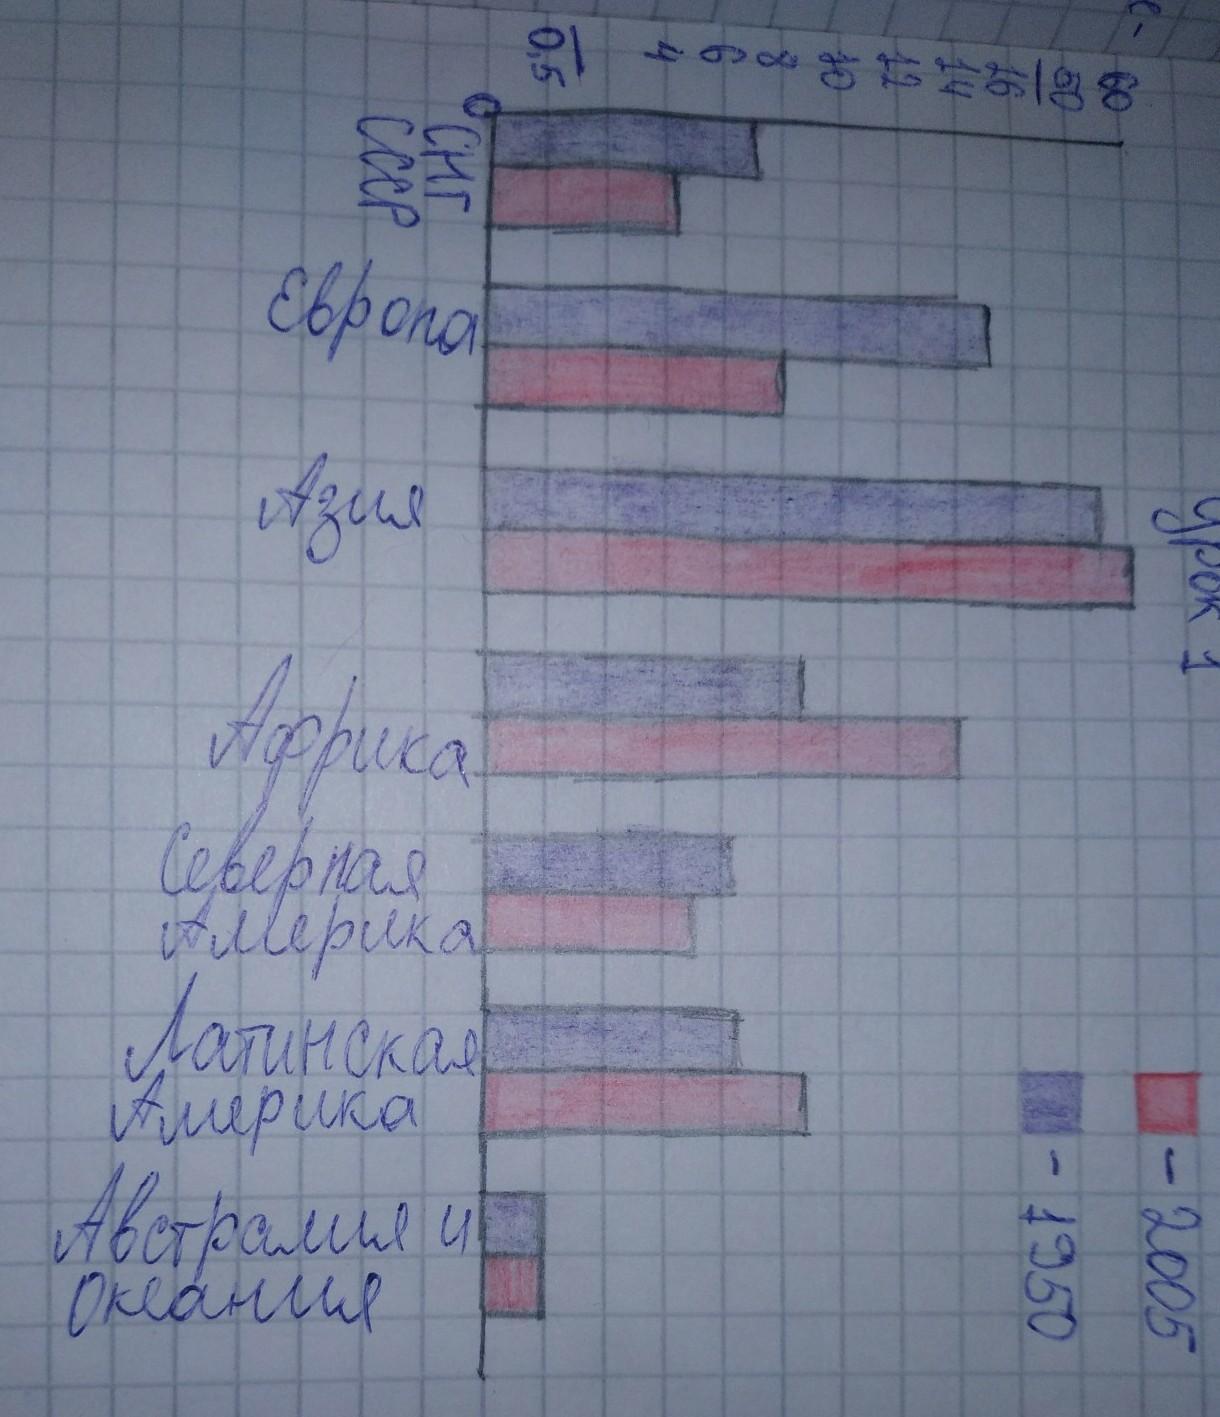 с-
0,5
4
6
8
10
12
14
16
50
60
0
СНГ
СССР
Европа
Азия
Урок 1
Африка
Северная
Америка
Латинская
Америка
Австралия и
Океания
- 2005
- 1950